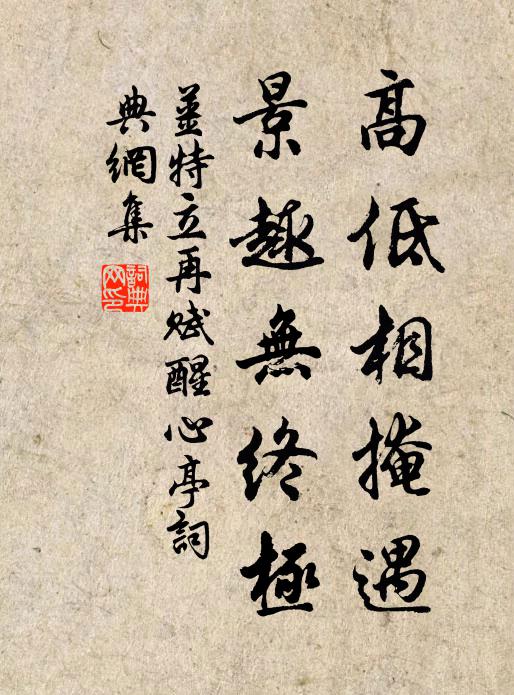 高低相掩遇
景趣無終極
姜特立再賦醒心亭詞
典網集
詞典網印